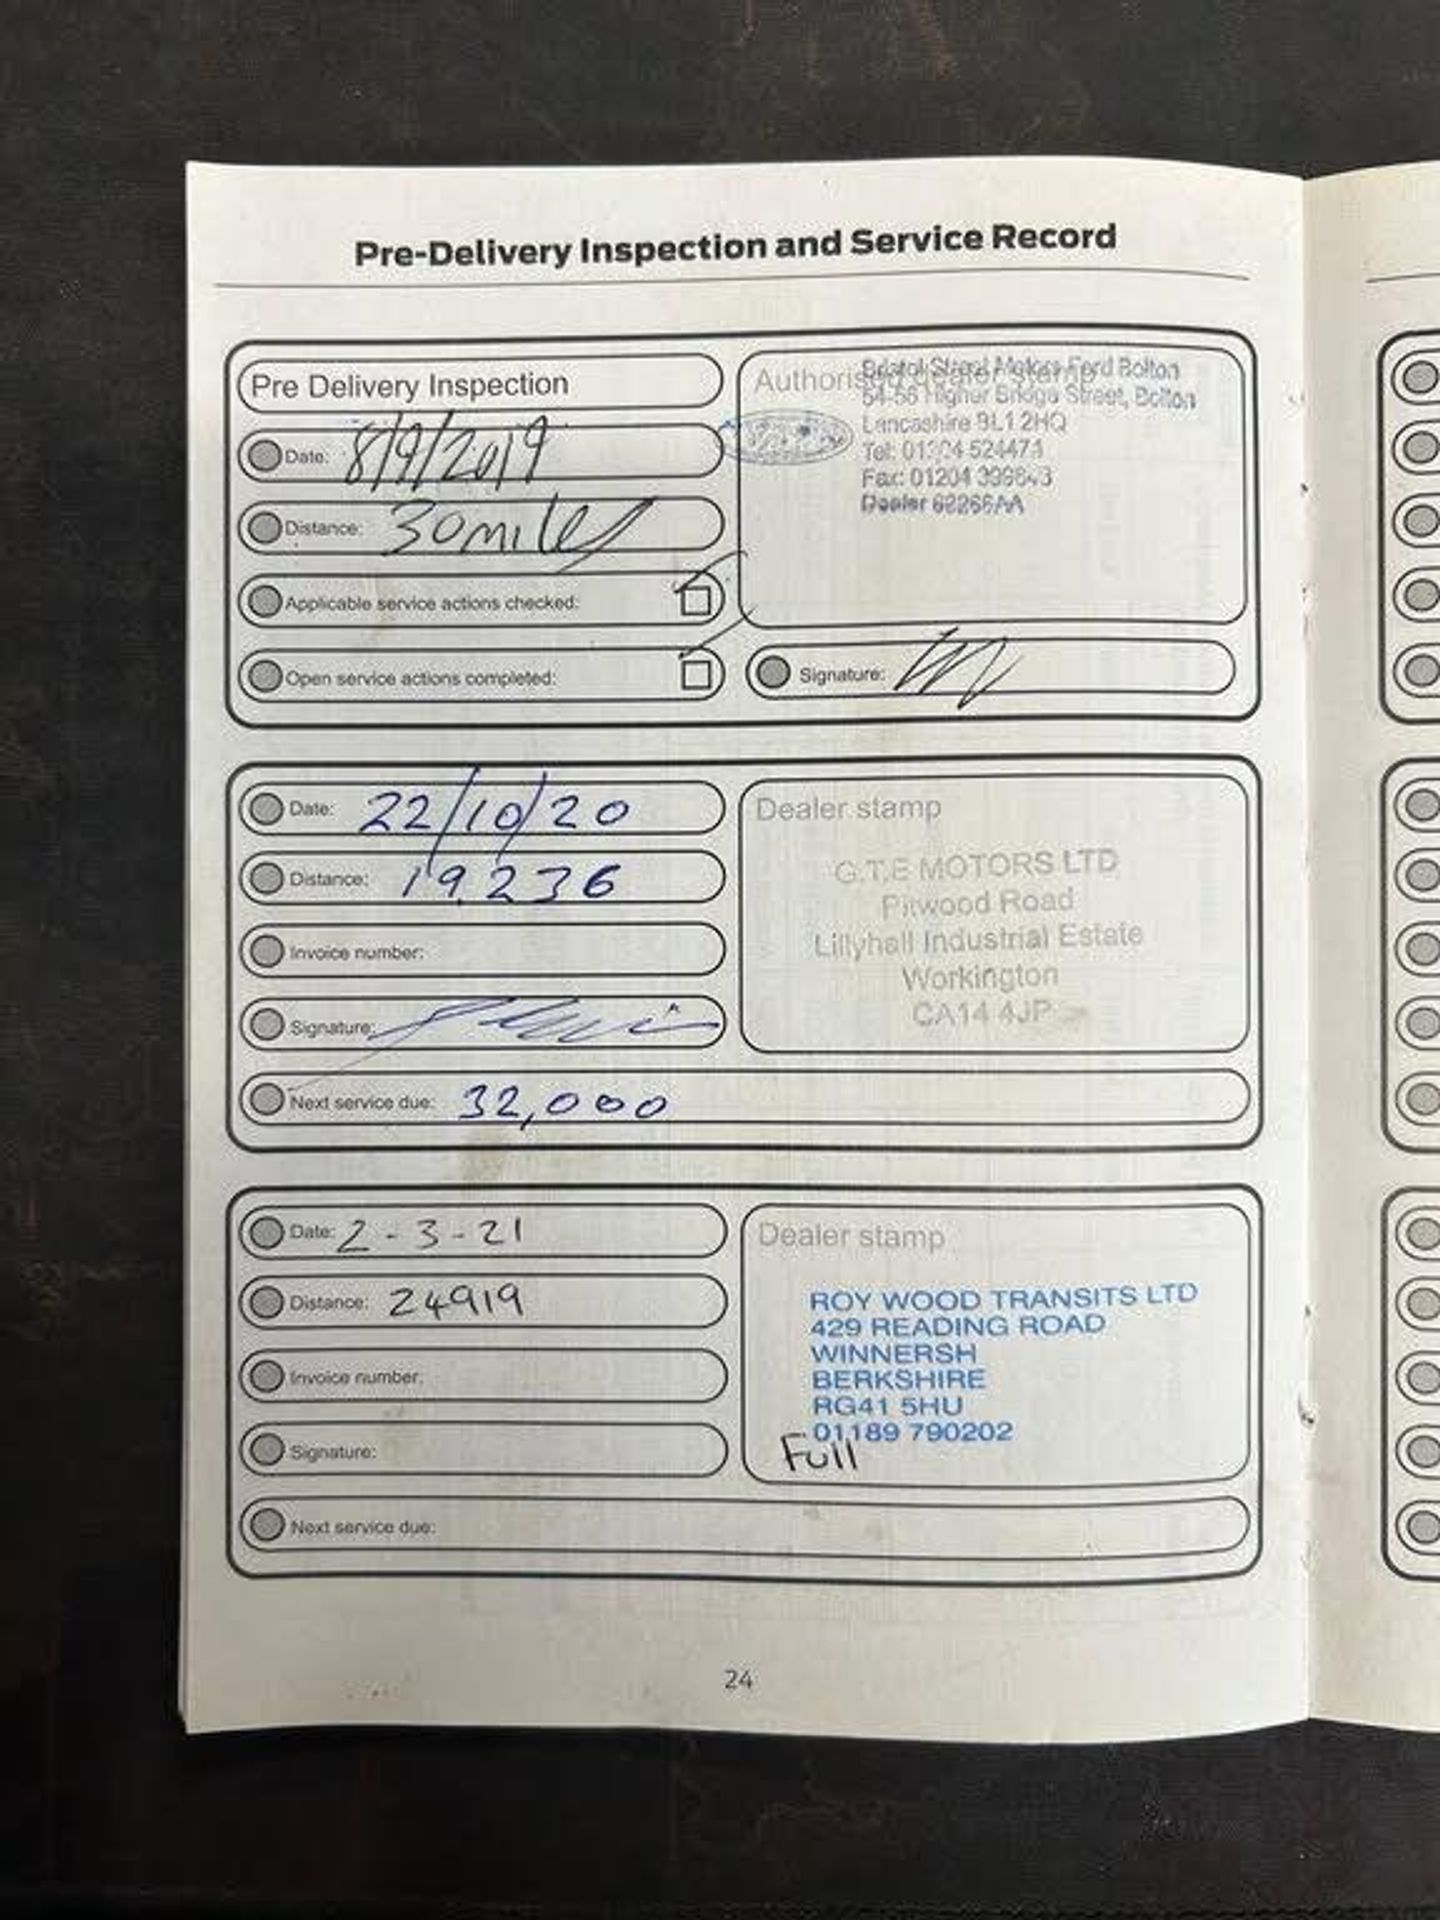 Pre-Delivery Inspection and Service Record
Pre Delivery Inspection
Date: 8/9/2019
Distance: 30 miles
Applicable service actions checked:
Open service actions completed:
Authorised dealer stamp
Bristol Street Motors Ford Bolton
54-56 Higher Bridge Street, Bolton
Lancashire BL1 2HQ
Tel: 01204 524474
Fax: 01204
Dealer
Signature:
Date: 22/10/20
Distance: 19,236
Invoice number:
Signature:
Next service due: 32,000
Dealer stamp
G.T.E MOTORS LTD
Pitwood Road
Lillyhall Industrial Estate
Workington
CA14 4JP
Date: 2-3-21
Distance: 24919
Invoice number:
Signature:
Next service due:
Dealer stamp
ROY WOOD TRANSITS LTD
429 READING ROAD
WINNERSH
BERKSHIRE
RG41 5HU
01189 790202
Full
24